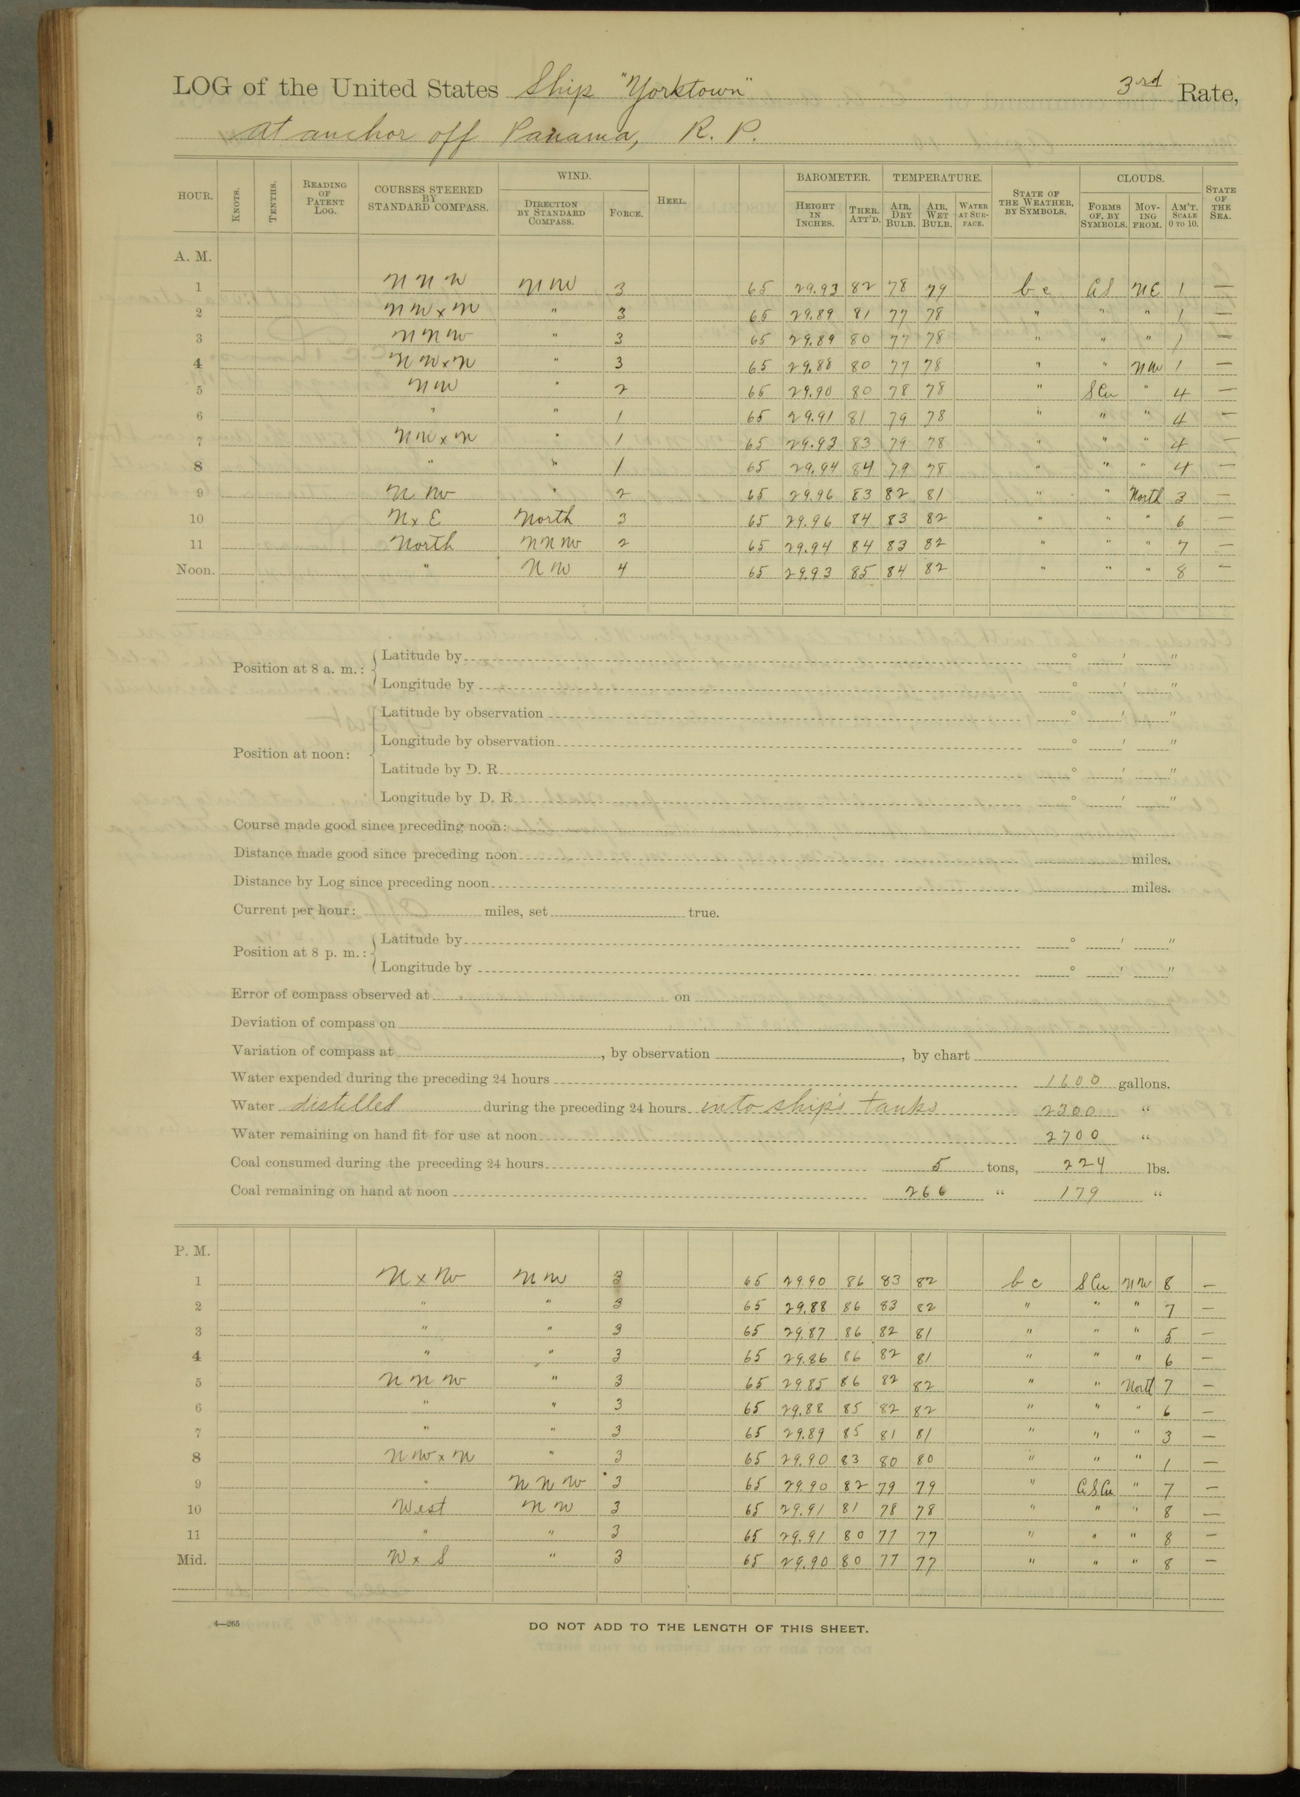 LOG of the United States Ship "Yorktown" 3rd Rate,
At anchor off Panama, R. P.
HOUR. KNOTS. TENTHS. READING OF PATENT LOG. COURSES STEERED BY STANDARD COMPASS. WIND. DIRECTION BY STANDARD COMPASS. FORCE. HEEL. BAROMETER. HEIGHT IN INCHES. THER. ATT'D. TEMPERATURE. AIR, DRY BULB. AIR, WET BULB. WATER AT SURFACE. STATE OF THE WEATHER, BY SYMBOLS. CLOUDS. FORMS OF, BY SYMBOLS. MOVING FROM. AM'T. SCALE 0 TO 10. STATE OF THE SEA.
A. M.
1 NNW NW 3 65 29.93 82 78 79 bc CS NE 1 —
2 NWxN " 3 65 29.89 81 77 78 " " " 1 —
3 NNW " 3 65 29.89 80 77 78 " " " 1 —
4 NWxN " 3 65 29.88 80 77 78 " " NW 1 —
5 NW " 2 65 29.90 80 78 78 " SCu " 4 —
6 " " 1 65 29.91 81 79 78 " " " 4 —
7 NWxN " 1 65 29.93 83 79 78 " " " 4 —
8 " " 1 65 29.94 84 79 78 " " " 4 —
9 NNW " 2 65 29.96 83 82 81 " " North 3 —
10 NxE North 3 65 29.96 84 83 82 " " " 6 —
11 North NNW 2 65 29.94 84 83 82 " " " 7 —
Noon. " NW 4 65 29.93 85 84 82 " " " 8 —
Position at 8 a. m.: Latitude by ° ' "
Longitude by ° ' "
Position at noon: Latitude by observation ° ' "
Longitude by observation ° ' "
Latitude by D. R. ° ' "
Longitude by D. R. ° ' "
Course made good since preceding noon:
Distance made good since preceding noon miles.
Distance by Log since preceding noon miles.
Current per hour: miles, set true.
Position at 8 p. m.: Latitude by ° ' "
Longitude by ° ' "
Error of compass observed at on
Deviation of compass on
Variation of compass at , by observation , by chart
Water expended during the preceding 24 hours 1600 gallons.
Water distilled during the preceding 24 hours into ship's tanks 2300 "
Water remaining on hand fit for use at noon 2700 "
Coal consumed during the preceding 24 hours 5 tons, 224 lbs.
Coal remaining on hand at noon 266 " 179 "
P. M.
1 NxW NW 3 65 29.90 86 83 82 bc SCu NW 8 —
2 " " 3 65 29.88 86 83 82 " " " 7 —
3 " " 3 65 29.87 86 82 81 " " " 5 —
4 " " 3 65 29.86 86 82 81 " " " 6 —
5 NNW " 3 65 29.85 86 82 82 " " North 7 —
6 " " 3 65 29.88 85 82 82 " " " 6 —
7 " " 3 65 29.89 85 81 81 " " " 3 —
8 NWxN " 3 65 29.90 83 80 80 " " " 1 —
9 " NNW 3 65 29.90 82 79 79 " CSCu " 7 —
10 West NW 3 65 29.91 81 78 78 " " " 8 —
11 " " 3 65 29.91 80 77 77 " " " 8 —
Mid. WxS " 3 65 29.90 80 77 77 " " " 8 —
4—265
DO NOT ADD TO THE LENGTH OF THIS SHEET.